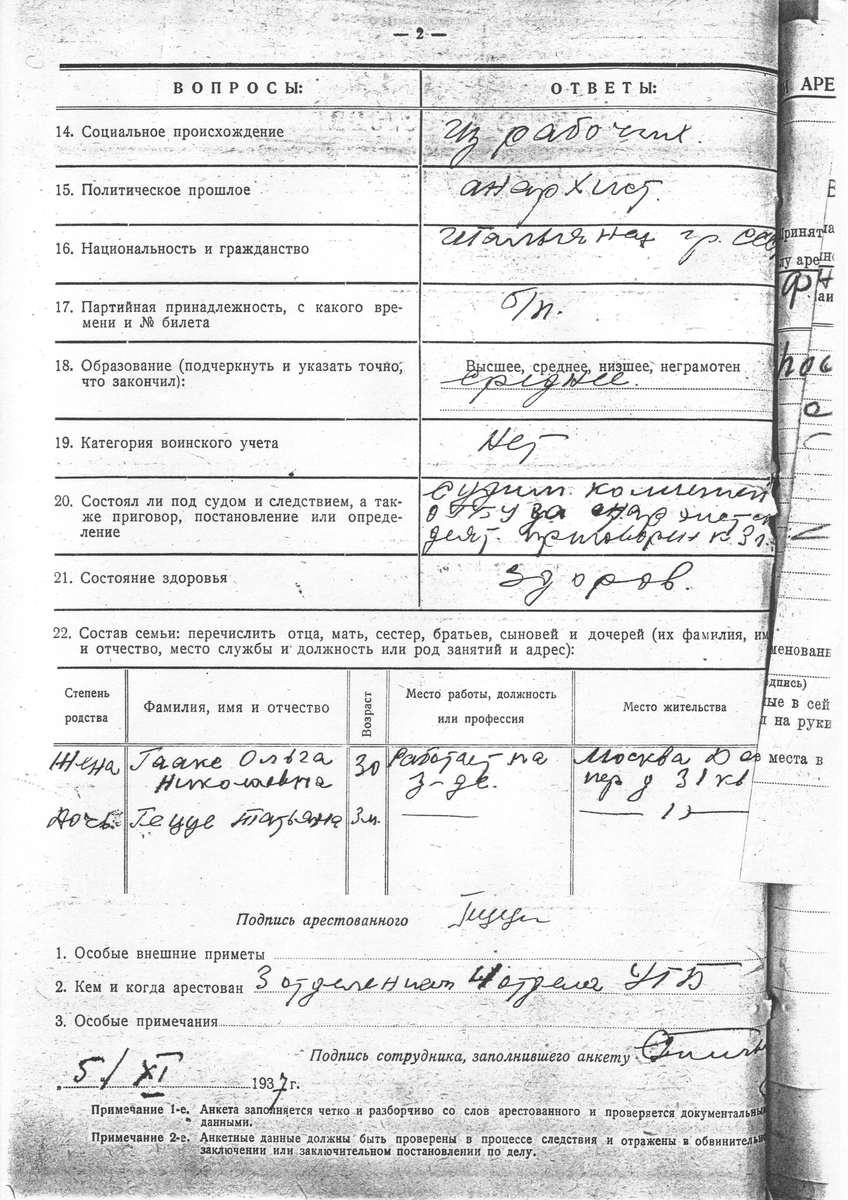 — 2 —
ВОПРОСЫ: ОТВЕТЫ:
14. Социальное происхождение из рабочих.
15. Политическое прошлое анархист.
16. Национальность и гражданство гр.
17. Партийная принадлежность, с какого вре-
мени и № билета б/п.
18. Образование (подчеркнуть и указать точно, Высшее, среднее, низшее, неграмотен
что закончил): среднее.
19. Категория воинского учета нет
20. Состоял ли под судом и следствием, а так-
же приговор, постановление или опреде-
ление
судим
ОГПУ за
деят. к 3 г.
21. Состояние здоровья здоров.
22. Состав семьи: перечислить отца, мать, сестер, братьев, сыновей и дочерей (их фамилия,
и отчество, место службы и должность или род занятий и адрес):
Степень родства Фамилия, имя и отчество Возраст Место работы, должность или профессия Место жительства
Жена Гааке Ольга 30 Работает на Москва
Николаевна з-де. пер д 31 кв
Дочь Гецце Татьяна 3 м. — — 1) —
Подпись арестованного
1. Особые внешние приметы
2. Кем и когда арестован 3 отделением 4 отдела УГБ
3. Особые примечания
Подпись сотрудника, заполнившего анкету
„ 5/XI 1937 г.
Примечание 1-е. Анкета заполняется четко и разборчиво со слов арестованного и проверяется
данными.
Примечание 2-е. Анкетные данные должны быть проверены в процессе следствия и отражены в
заключении или заключительном постановлении по делу.
АРЕ
места в